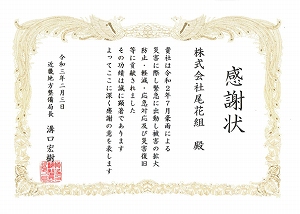 感謝状
株式会社尾花組 殿
貴社は令和2年7月豪雨による
災害に際し緊急に出動し被害の拡大
防止・軽減・応急対応及び災害復旧
等に貢献されました
その功績は誠に顕著であります
よってここに深く感謝の意を表します
令和三年二月三日
近畿地方整備局長
溝口宏樹